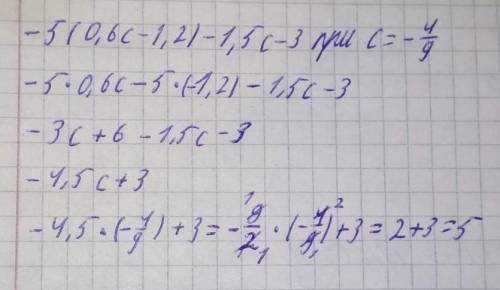 -5(0,6c-1,2)-1,5c-3 при c=-4/9
-5·0,6c-5·(-1,2)-1,5c-3
-3c+6-1,5c-3
-4,5c+3
-4,5·(-4/9)+3=-9/2·(-4/9)+3=2+3=5